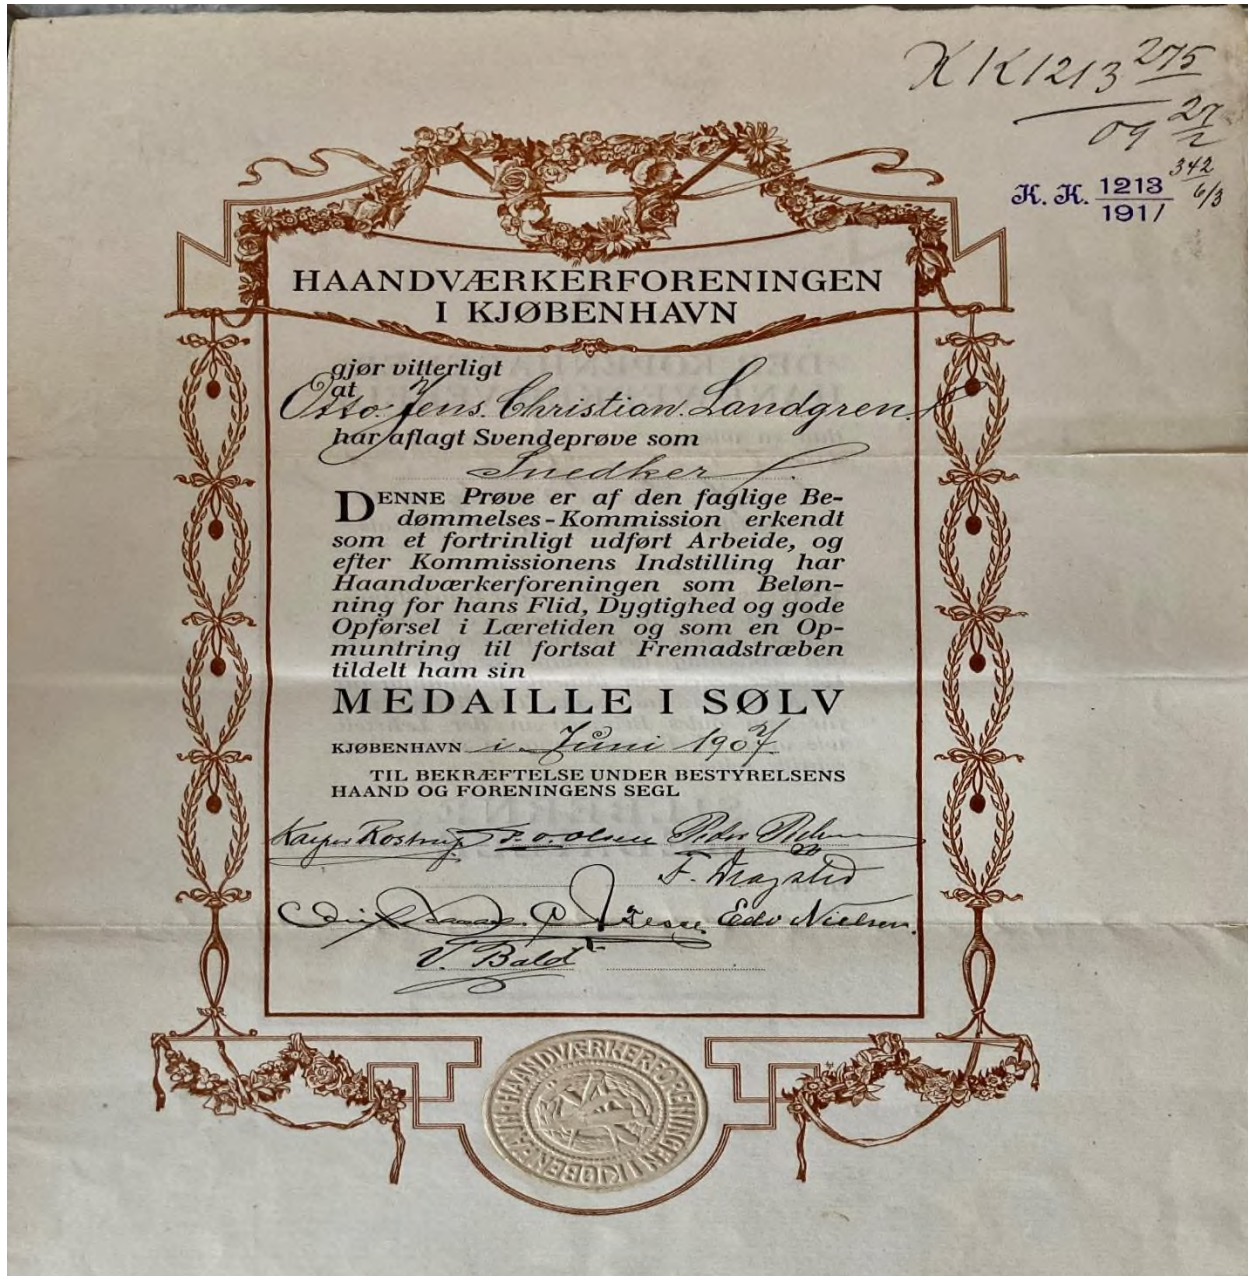 K K 1213 275
09 27/2
342
6/3
K. K. 1213
1911
HAANDVÆRKERFORENINGEN
I KJØBENHAVN
gjør vitterligt
at
Otto. Jens. Christian. Landgren.
har aflagt Svendeprøve som
Snedker
DENNE Prøve er af den faglige Be-
dømmelses-Kommission erkendt
som et fortrinligt udført Arbeide, og
efter Kommissionens Indstilling har
Haandværkerforeningen som Beløn-
ning for hans Flid, Dygtighed og gode
Opførsel i Læretiden og som en Op-
muntring til fortsat Fremadstræben
tildelt ham sin
MEDAILLE I SØLV
KJØBENHAVN i Juni 1907.
TIL BEKRÆFTELSE UNDER BESTYRELSENS
HAAND OG FORENINGENS SEGL
Kasper Rostrup F. O. Olsen Peter
F. Dragsted
Edv Nielsen.
V. Bald
HAANDVÆRKERFORENINGEN I KJØBENHAVN